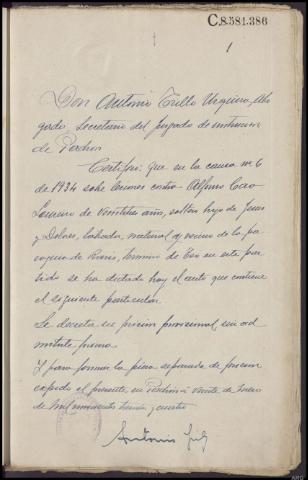 C.8.581.386
1
Don Antonio Trillo Urquiza, Abo
gado, Secretario del Juzgado de instrucción
de Padrón
Certifico: que en la causa nº 6
de 1934 sobre lesiones contra Alfonso Cao
de veintitrés años, soltero, hijo de Jesús
y Dolores, labrador, natural y vecino de la pa
rroquia de término de Teo en este par
tido se ha dictado hoy el auto que contiene
el siguiente particular
Se decreta su prisión provisional sin ad
mitirle fianza
Y para formar la pieza separada de prisión
expido el presente en Padrón a veinte de Enero
de mil novecientos treinta y cuatro
Antonio